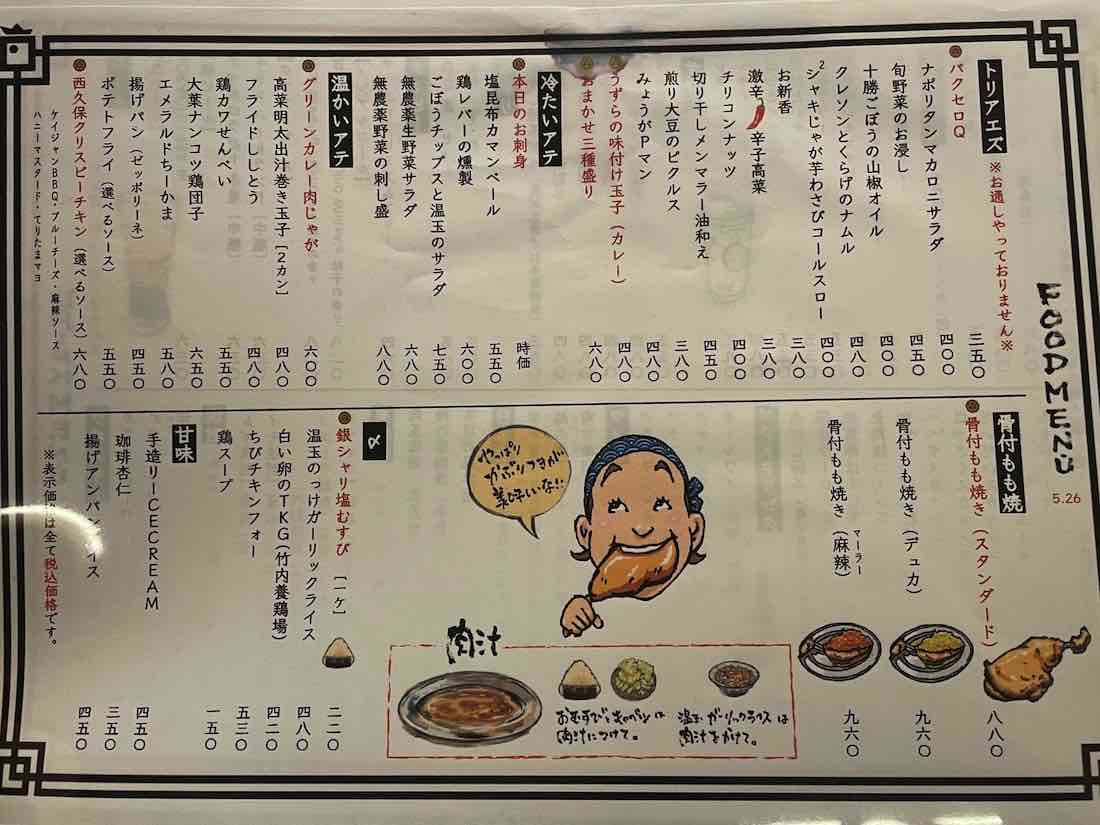 FOOD MENU
5.26
トリアエズ ※お通しやっておりません※
パクセロQ 三五〇
ナポリタンマカロニサラダ 四〇〇
旬野菜のお浸し 四五〇
十勝ごぼうの山椒オイル 四〇〇
クレソンとくらげのナムル 四八〇
シャキ²じゃが芋わさびコールスロー 四〇〇
お新香 三八〇
激辛 辛子高菜 三八〇
チリコンナッツ 四〇〇
切り干しメンマラー油和え 四五〇
煎り大豆のピクルス 三八〇
みょうがPマン 四八〇
うずらの味付け玉子(カレー) 四八〇
おまかせ三種盛り 六八〇
冷たいアテ
本日のお刺身 時価
塩昆布カマンベール 五五〇
鶏レバーの燻製 六〇〇
ごぼうチップスと温玉のサラダ 七五〇
無農薬生野菜サラダ 六八〇
無農薬野菜の刺し盛 八八〇
温かいアテ
グリーンカレー肉じゃが 六〇〇
高菜明太出汁巻き玉子[2カン] 四八〇
フライドししとう 四八〇
鶏カワせんべい 五五〇
大葉ナンコツ鶏団子 六五〇
エメラルドちーかま 五八〇
揚げパン(ゼッポリーネ) 四五〇
ポテトフライ(選べるソース) 五五〇
西久保クリスピーチキン(選べるソース) 六八〇
ケイジャンBBQ・ブルーチーズ・麻辣ソース
ハニーマスタード・てりたまマヨ
骨付もも焼
骨付もも焼き(スタンダード) 八八〇
骨付もも焼き(デュカ) 九六〇
骨付もも焼き(麻辣) 九六〇
マーラー
やっぱり
かぶりつきが
美味いな!!
肉汁
温玉ガーリックライスは
肉汁をかけて。
おむすびとキャベツは
肉汁につけて。
〆
銀シャリ塩むすび [一ケ] 二二〇
温玉のっけガーリックライス 四八〇
白い卵のTKG(竹内養鶏場) 四二〇
ちびチキンフォー 五三〇
鶏スープ 一五〇
甘味
手造りーCECREAM 四五〇
珈琲杏仁 三五〇
揚げアンパン イス 四五〇
※表示価 は全て税込価格です。